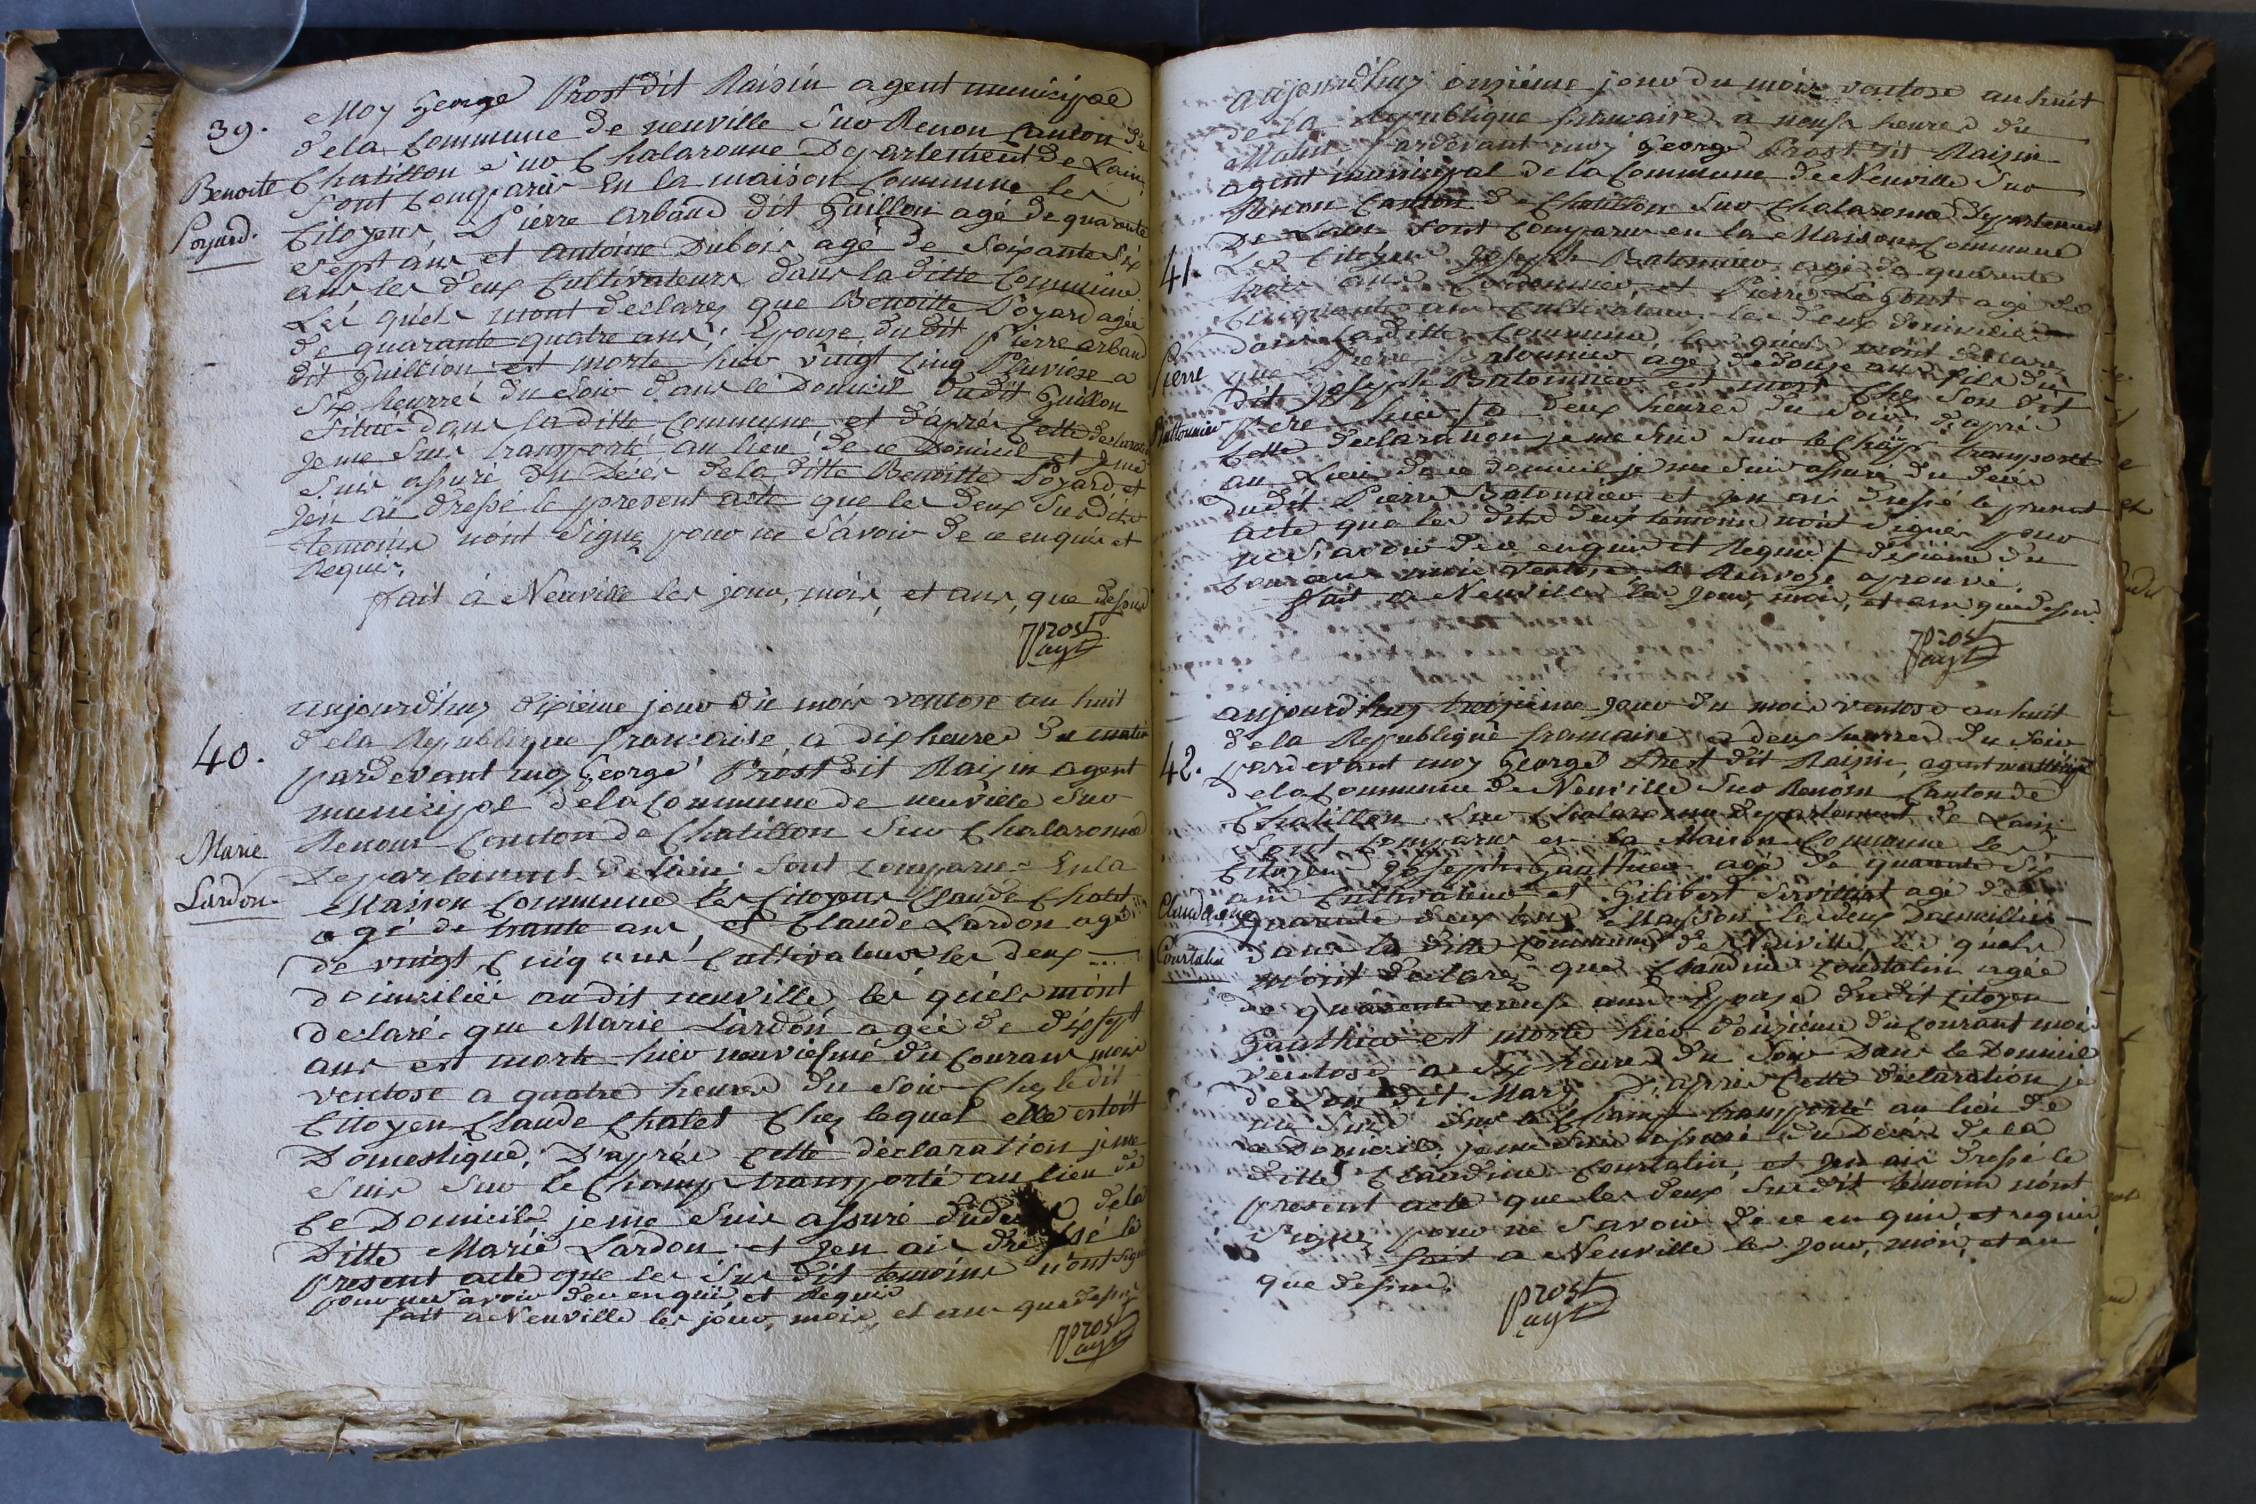 39.
Benoite
Poyard.
Moy George Prost dit Raisin agent municipal
de la Commune de neuville Sur Renon Canton de
Chatillon Sur Chalaronne Departement de Lain,
Sont Comparus En la maison Commune les
Citoyens, Pierre arbaud dit Guillon agé de quarante
sept ans et antoine Dubois agé de Soixante Six
ans les deux Cultivateurs dans la ditte Commune
Les quels mont declarez que Benoitte Poyard agée
de quarante quatre ans, Epouse du dit Pierre arbaud
dit Guillion est morte hier vingt cinq Pluviose a
Six heurres du Soir dans le Domicil dudit Guillon
Situé dans la ditte Commune et d'après Cette declaration
Je me Suis transporté au lieu de ce Domicil et Je me
Suis assuré du Decès de la ditte Benoitte Poyard et
J'en ai dressé le present acte que les deux Susdits
temoins n'ont Signez pour ne Savoir de ce enquis et
Requis,
fait à Neuville les jour, mois, et ans, que dessus
Prost
agt
40.
Marie
Lardon.
aujourd'huy dixième jour du mois ventose an huit
de la Republique francaise, a dix heures du matin
pardevant moy George Prost dit Raisin agent
municipal de la Commune de neuville Sur
Renon Canton de Chatillon Sur Chalaronne
Departement de Lain Sont comparus En la
Maison Commune les Citoyens Claude Chalet
agé de trante ans, et Claude Lardon agé
de vingt Cinq ans Cultivateurs les deux
domiciliés audit neuville, les quels m'ont
declaré que Marie Lardon agée de dix sept
ans est morte hier neuviesme du Courant mois
ventose a quatre heures du Soir Chez le dit
Citoyen Claude Chalet Chez lequel elle estoit
Domestique, D'après Cette déclaration je me
Suis Sur le Champ transporté au lieu de
Ce Domicile je me Suis assuré du de la
Ditte Marie Lardon et J'en ai dressé le
present acte que les Sus dit temoins n'ont signé
pour ne Savoir de ce enquis et Requis
fait à Neuville les jour, mois, et an que dessus
Prost
agt
41.
Pierre
Battonnier
aujourd'huy onzième jour du mois ventose an huit
de la republique francaise a neuf heures du
Matin Pardevant moy George Prost dit Raisin
agent municipal de la Commune de Neuville Sur
Renon Canton de Chatillon Sur Chalaronne departement
De Lain Sont Comparus en la Maison Commune
Les Citoyens Joseph Batonnier agé de quarante
trois ans Cordonnier, et Pierre agé de
Cinquante ans Cultivateur les deux domiciliés
dans la ditte Commune, les quels m'ont declarez
que Pierre Batonnier agé de douze ans fils du
dit Joseph Batonnier est mort Chez Son dit
pere hier a deux heures du Soir d'après
Cette declaration je me Suis Sur le Champ transporté
au Lieu de ce domicil je me Suis assuré du decès
dudit Pierre Batonnier et J'en ai dressé le present
acte que les dits deux temoins n'ont Signés pour
ne Savoir de ce enquis et Requis dixième du
Courant mois ventose aprouvé
fait a Neuville les jour, mois, et an que dessus
Prost
agt
42.
Claudine
Courtalin
aujourd'huy treizieme jour du mois ventose an huit
de la Republique francaise a deux heures du Soir
pardevant moy George Prost dit Raisin, agent municipal
de la Commune de Neuville Sur Renom Canton de
Chatillon Sur Chalaronne departement de Lain
Sont Comparus en la Maison Commune les
Citoyens Joseph Gauthier agé de quarante Six
ans Cultivateur et Gilibert agé de
quarante deux ans Masson les deux Domicilliés
dans la ditte Commune de Neuville, les quels
m'ont declarez que Claudine Courtalin agée
de quarente neuf ans Epouse dudit Citoyen
Gauthier est morte hier douzième du Courant mois
ventose a Six heures du Soir Dans le Domicil
de Son dit Mary, D'après Cette déclaration je
me Suis Sur le Champ transporté au lieu de
ce Domicil, je me Suis assuré du Decès de la
ditte Claudine Courtalin, et J'en ais dressé le
present acte que les deux Susdit temoins n'ont
Signez pour ne Savoir de ce enquis et requis
fait a Neuville les jour, mois, et an
que dessus.
Prost
agt